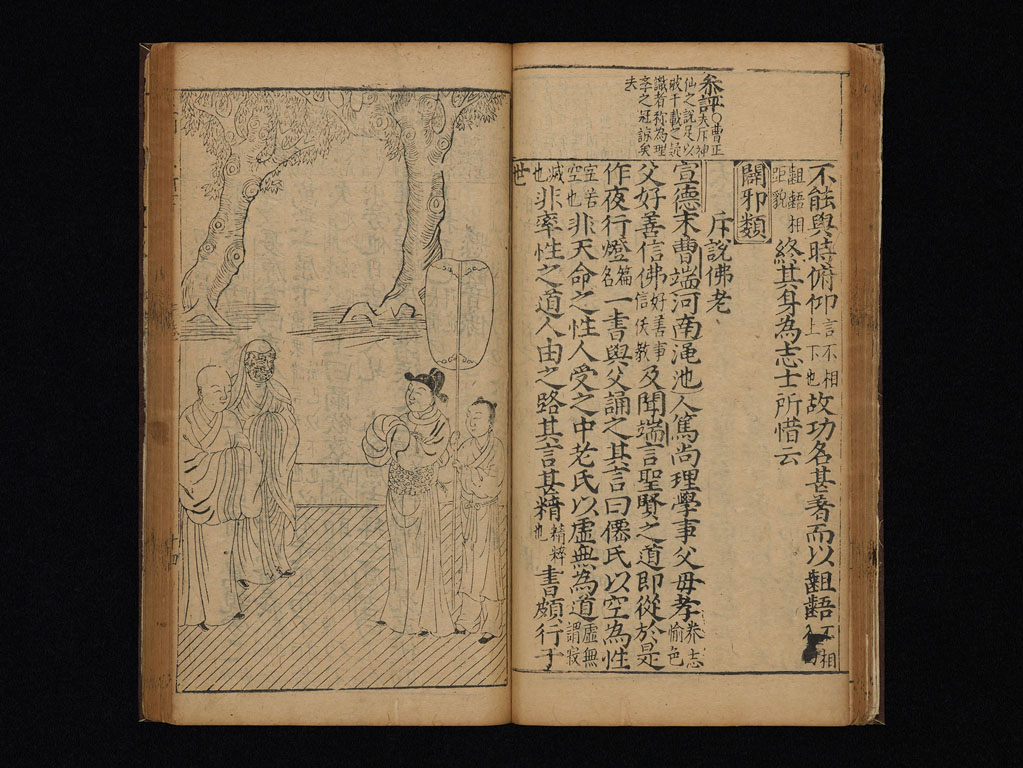 叅評○曹正夫斥神
仙之說足以
破千載之誤
識者稱為理
學之冠諒矣
夫
不能與時俯仰言不相上下也故功名甚著而以齟齬不相
齟齬相距貌終其身為志士所惜云
闢邪類
斥說佛老
宣德末曹端河南澠池人篤尚理學事父母孝養志愉色
父好善信佛好善事信佛教及聞端言聖賢之道即從於是
作夜行燈篇名一書與父誦之其言曰僊氏以空為性
空苦空也非天命之性人受之中老氏以虛無為道虛無謂寂
滅也非率性之道人由之路其言甚精精粹也書頗行于
世